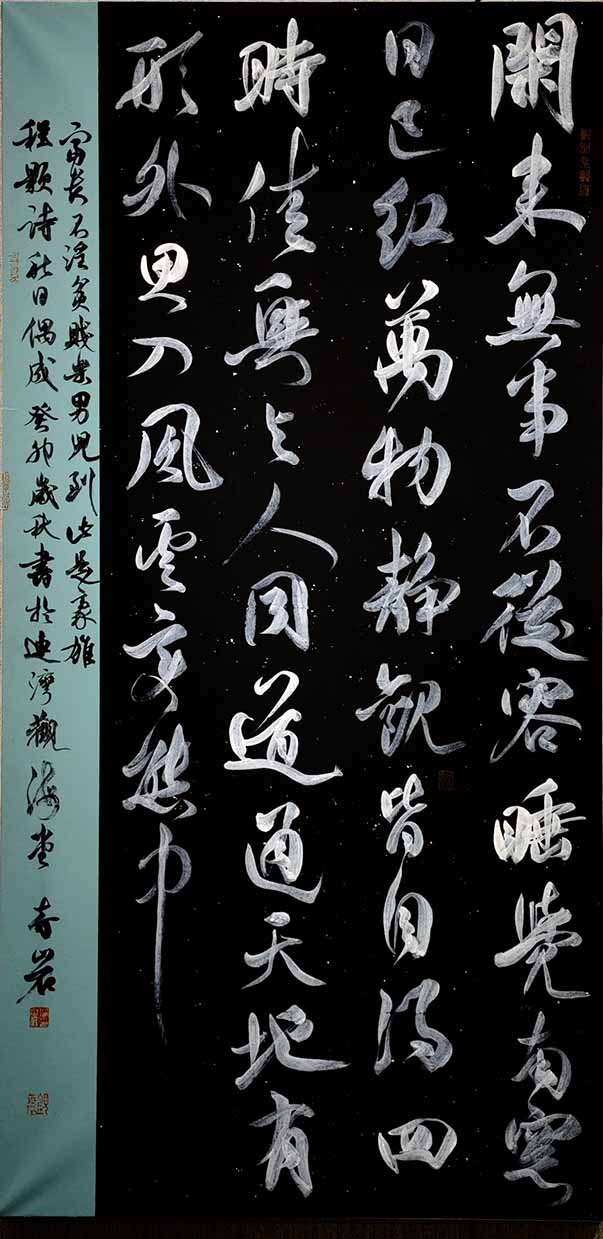 閑來無事不從容睡覺南窗
日已紅萬物静觀皆自得四
時佳興与人同道通天地有
形外思入風雲變態中
富貴不淫貧賤樂男兒到此是豪雄
程顥詩秋日偶成癸卯歲秋書於連灣觀海堂 奇岩